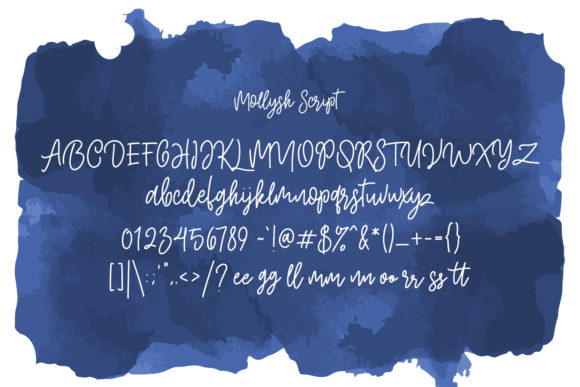 Mollysh Script
ABCDEFGHIJKLMNOPQRSTUVWXYZ
abcdefghijklmnopqrstuvwxyz
0123456789 ~`!@#$%^&*()_+-={}
[]|\:;'",.<>/? ee gg ll mm nn oo rr ss tt